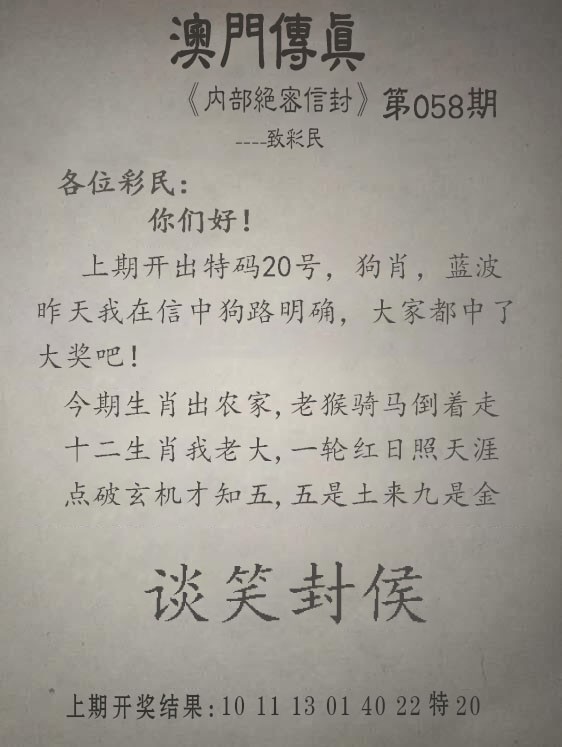 澳門傳真
《内部絕密信封》第058期
----致彩民
各位彩民：
你们好！
上期开出特码20号，狗肖，蓝波
昨天我在信中狗路明确，大家都中了
大奖吧！
今期生肖出农家,老猴骑马倒着走
十二生肖我老大,一轮红日照天涯
点破玄机才知五,五是土来九是金
谈笑封侯
上期开奖结果:10 11 13 01 40 22特20